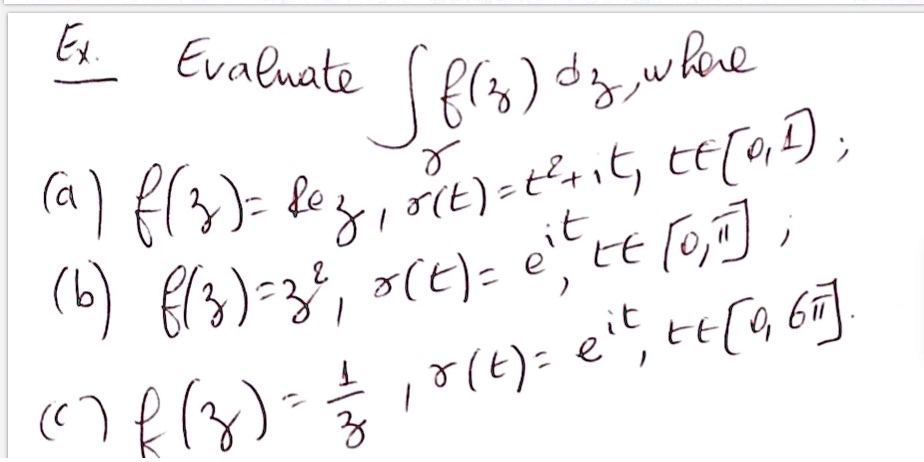 Ex. Evaluate ∫_γ f(z) dz, where
(a) f(z) = Re z, γ(t) = t²+it, t∈[0,1];
(b) f(z) = z², γ(t) = e^{it}, t∈[0,π];
(c) f(z) = 1/z, γ(t) = e^{it}, t∈[0,6π].